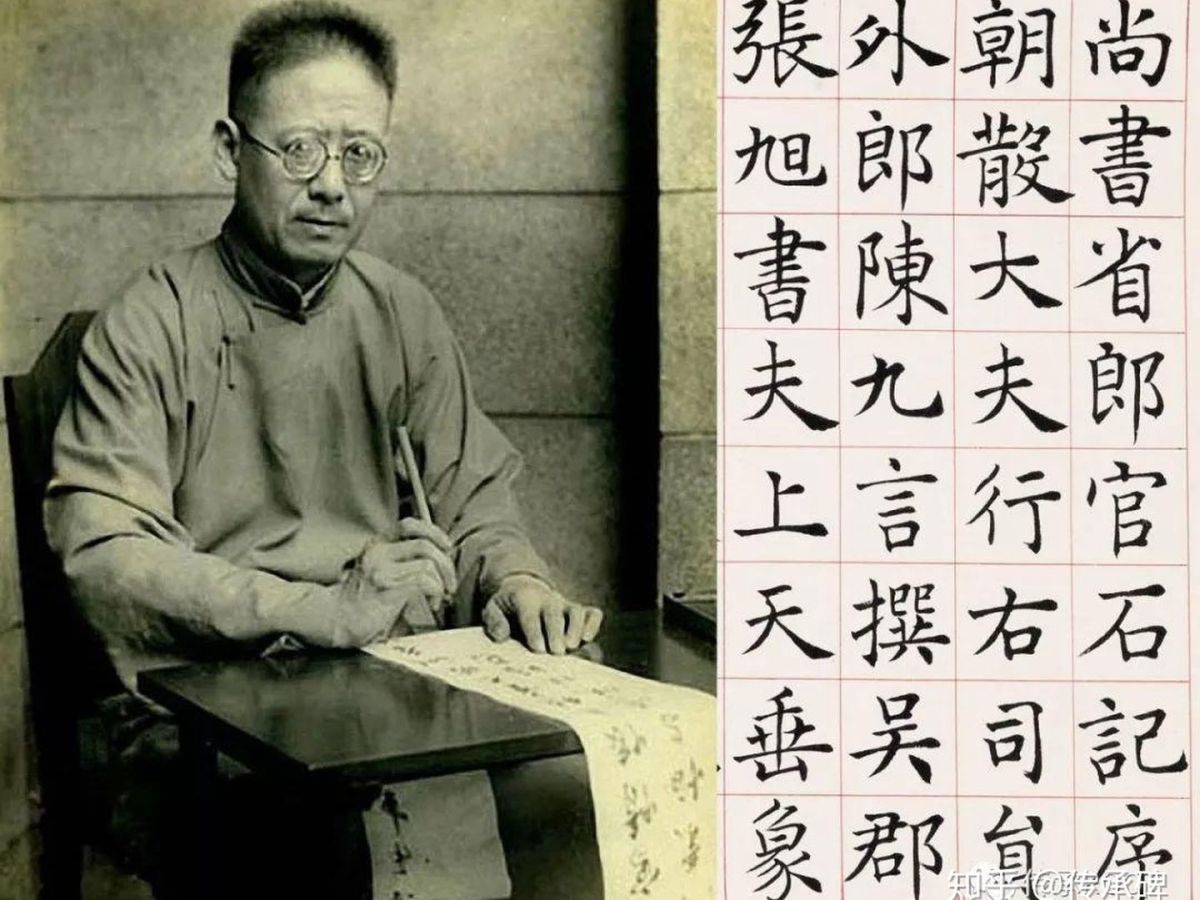 尚書省郎官石記序
朝散大夫行右司員
外郎陳九言撰吳郡
張旭書夫上天垂象
知乎 @传承碑